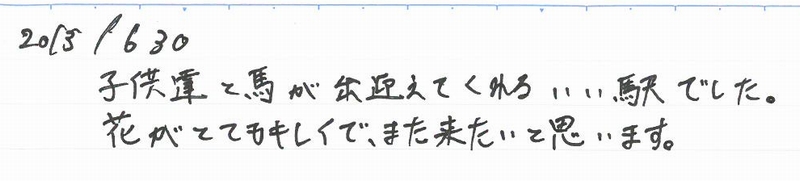 2015/630
子供達と馬が出迎えてくれるいい駅でした。
花がとてもキレイで、また来たいと思います。